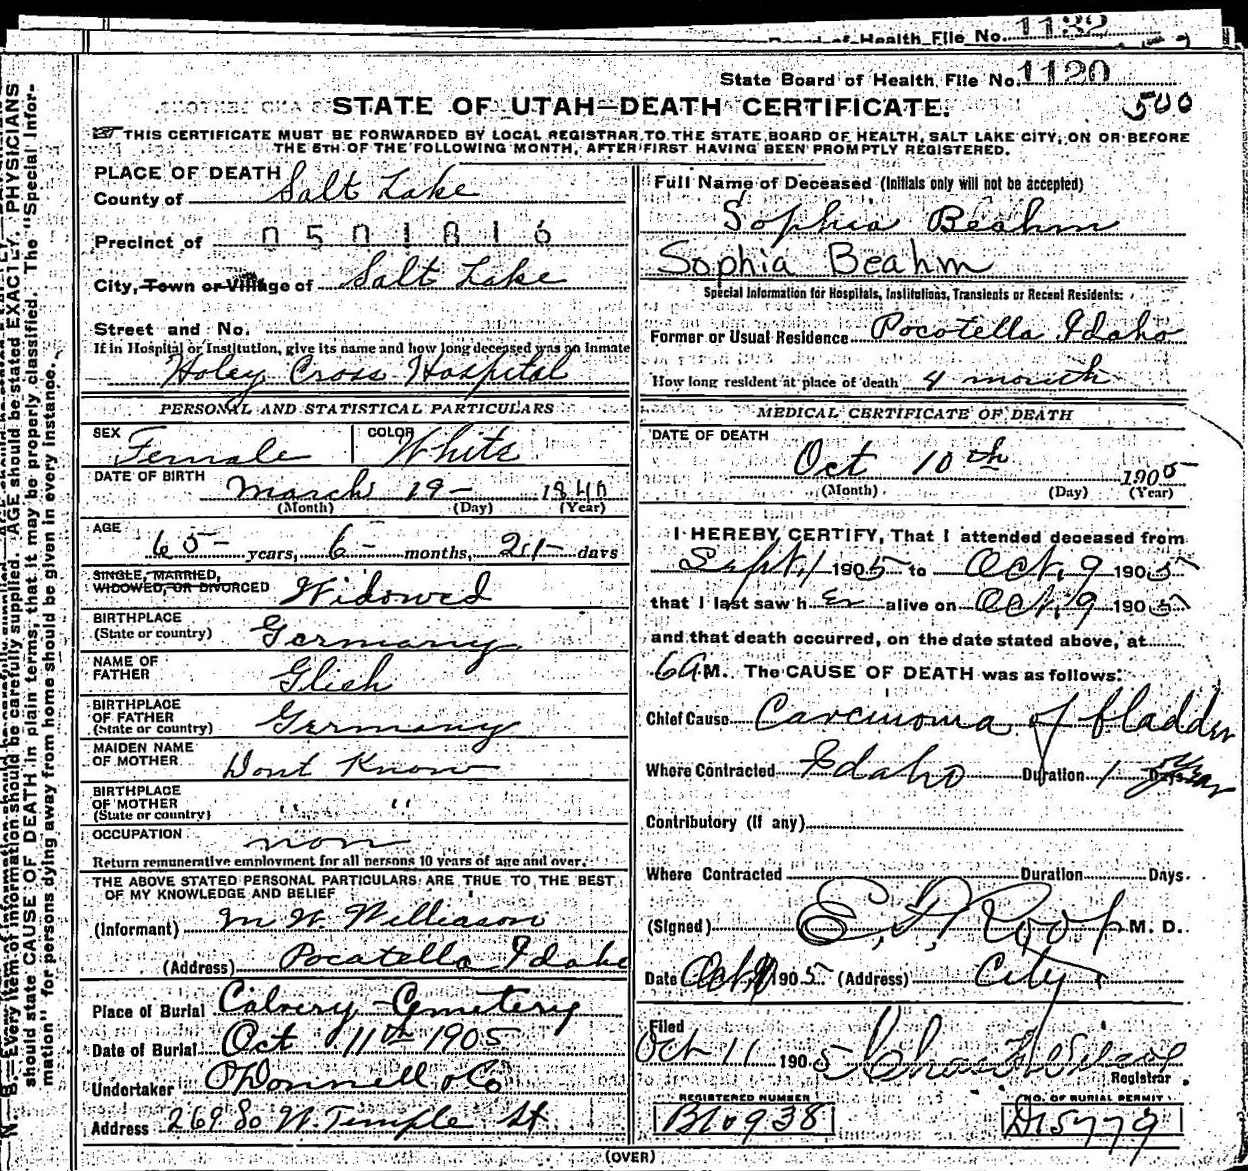 Board of Health File No. 1132
State Board of Health, File No. 1120
500
STATE OF UTAH—DEATH CERTIFICATE.
THIS CERTIFICATE MUST BE FORWARDED BY LOCAL REGISTRAR TO THE STATE BOARD OF HEALTH, SALT LAKE CITY, ON OR BEFORE
THE 5TH OF THE FOLLOWING MONTH, AFTER FIRST HAVING BEEN PROMPTLY REGISTERED.
PLACE OF DEATH
County of Salt Lake
Precinct of 0501816
City, Town or Village of Salt Lake
Street and No.
If in Hospital or Institution, give its name and how long deceased was an inmate
Holey Cross Hospital
PERSONAL AND STATISTICAL PARTICULARS
SEX Female COLOR White
DATE OF BIRTH March 19 - 1840
(Month) (Day) (Year)
AGE 65 - years, 6 - months, 21 - days
SINGLE, MARRIED,
WIDOWED, OR DIVORCED Widowed
BIRTHPLACE
(State or country) Germany
NAME OF
FATHER Glish
BIRTHPLACE
OF FATHER
(State or country) Germany
MAIDEN NAME
OF MOTHER Dont Know
BIRTHPLACE
OF MOTHER
(State or country) " "
OCCUPATION non
Return remunerative employment for all persons 10 years of age and over.
THE ABOVE STATED PERSONAL PARTICULARS ARE TRUE TO THE BEST
OF MY KNOWLEDGE AND BELIEF
(Informant) M W. Williason
(Address) Pocatella Idaho
Place of Burial Calvery Cemetery
Date of Burial Oct 11th 1905
Undertaker O'Donnell & Co
Address 269 So W. Temple St
Full Name of Deceased (Initials only will not be accepted)
Sophia Beahm
Sophia Beahm
Special Information for Hospitals, Institutions, Transients or Recent Residents:
Former or Usual Residence Pocotella Idaho
How long resident at place of death 4 month
MEDICAL CERTIFICATE OF DEATH
DATE OF DEATH
Oct 10th 1905
(Month) (Day) (Year)
I HEREBY CERTIFY, That I attended deceased from
Sept. 1 1905 to Oct. 9 1905
that I last saw h er alive on Oct. 9 1905
and that death occurred, on the date stated above, at
6 A M. The CAUSE OF DEATH was as follows:
Chief Cause Carcinoma of bladder
Where Contracted Idaho Duration 1 year
Contributory (If any)
Where Contracted Duration Days
(Signed) E. D. Roop M. D.
Date Oct 1905 (Address) City
Filed
Oct 11 1905 Chas Wilcox
Registrar
REGISTERED NUMBER
B10938
NO. OF BURIAL PERMIT
D15779
(OVER)
N. B.—Every item of information should be carefully supplied. AGE should be stated EXACTLY. PHYSICIANS
should state CAUSE OF DEATH in plain terms, that it may be properly classified. The "Special Infor-
mation" for persons dying away from home should be given in every instance.